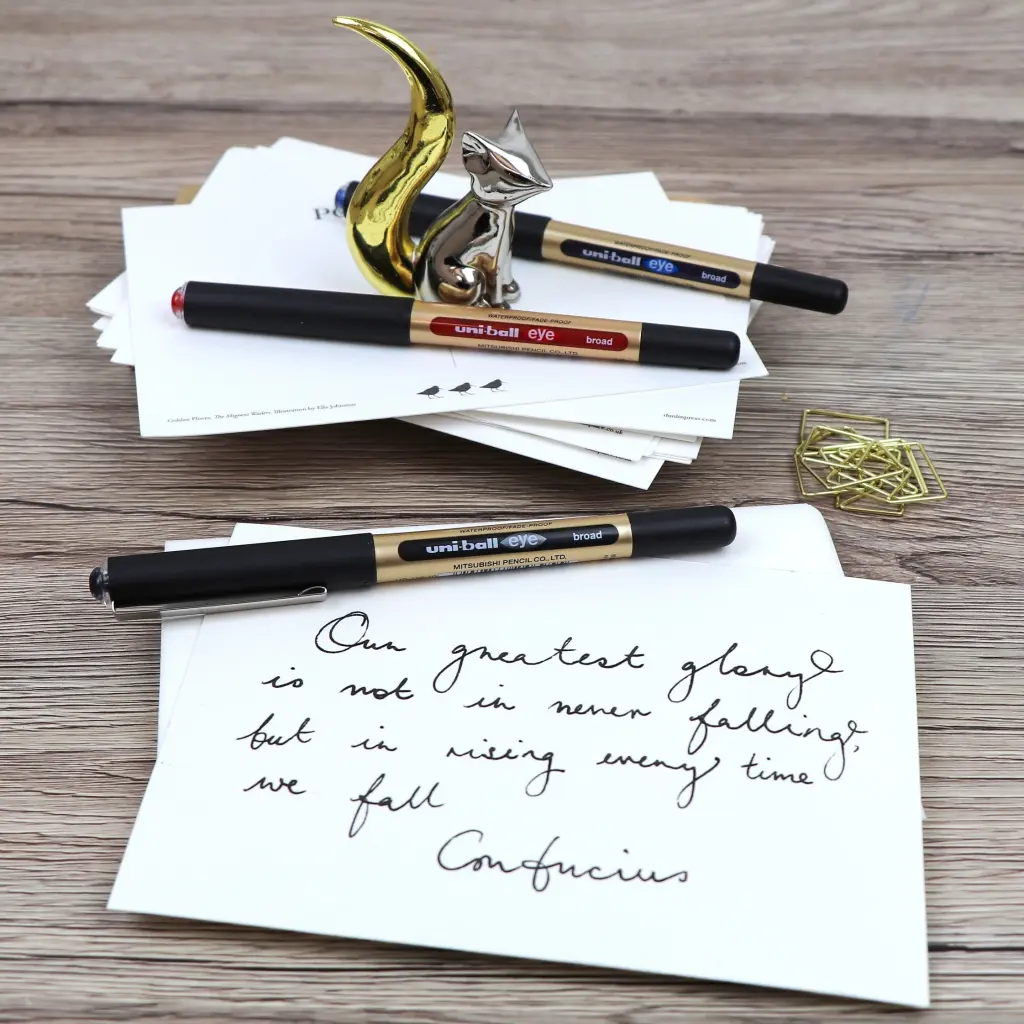 WATERPROOF/FADE-PROOF
uni-ball eye broad
WATERPROOF/FADE-PROOF
uni-ball eye broad
MITSUBISHI PENCIL CO., LTD.
Golden Plover, The Migrant Waders, Illustration by Elle Johnston
dunlinpress.com
WATERPROOF/FADE-PROOF
uni-ball eye broad
MITSUBISHI PENCIL CO., LTD.
Our greatest glory
is not in never falling,
but in rising every time
we fall
Confucius